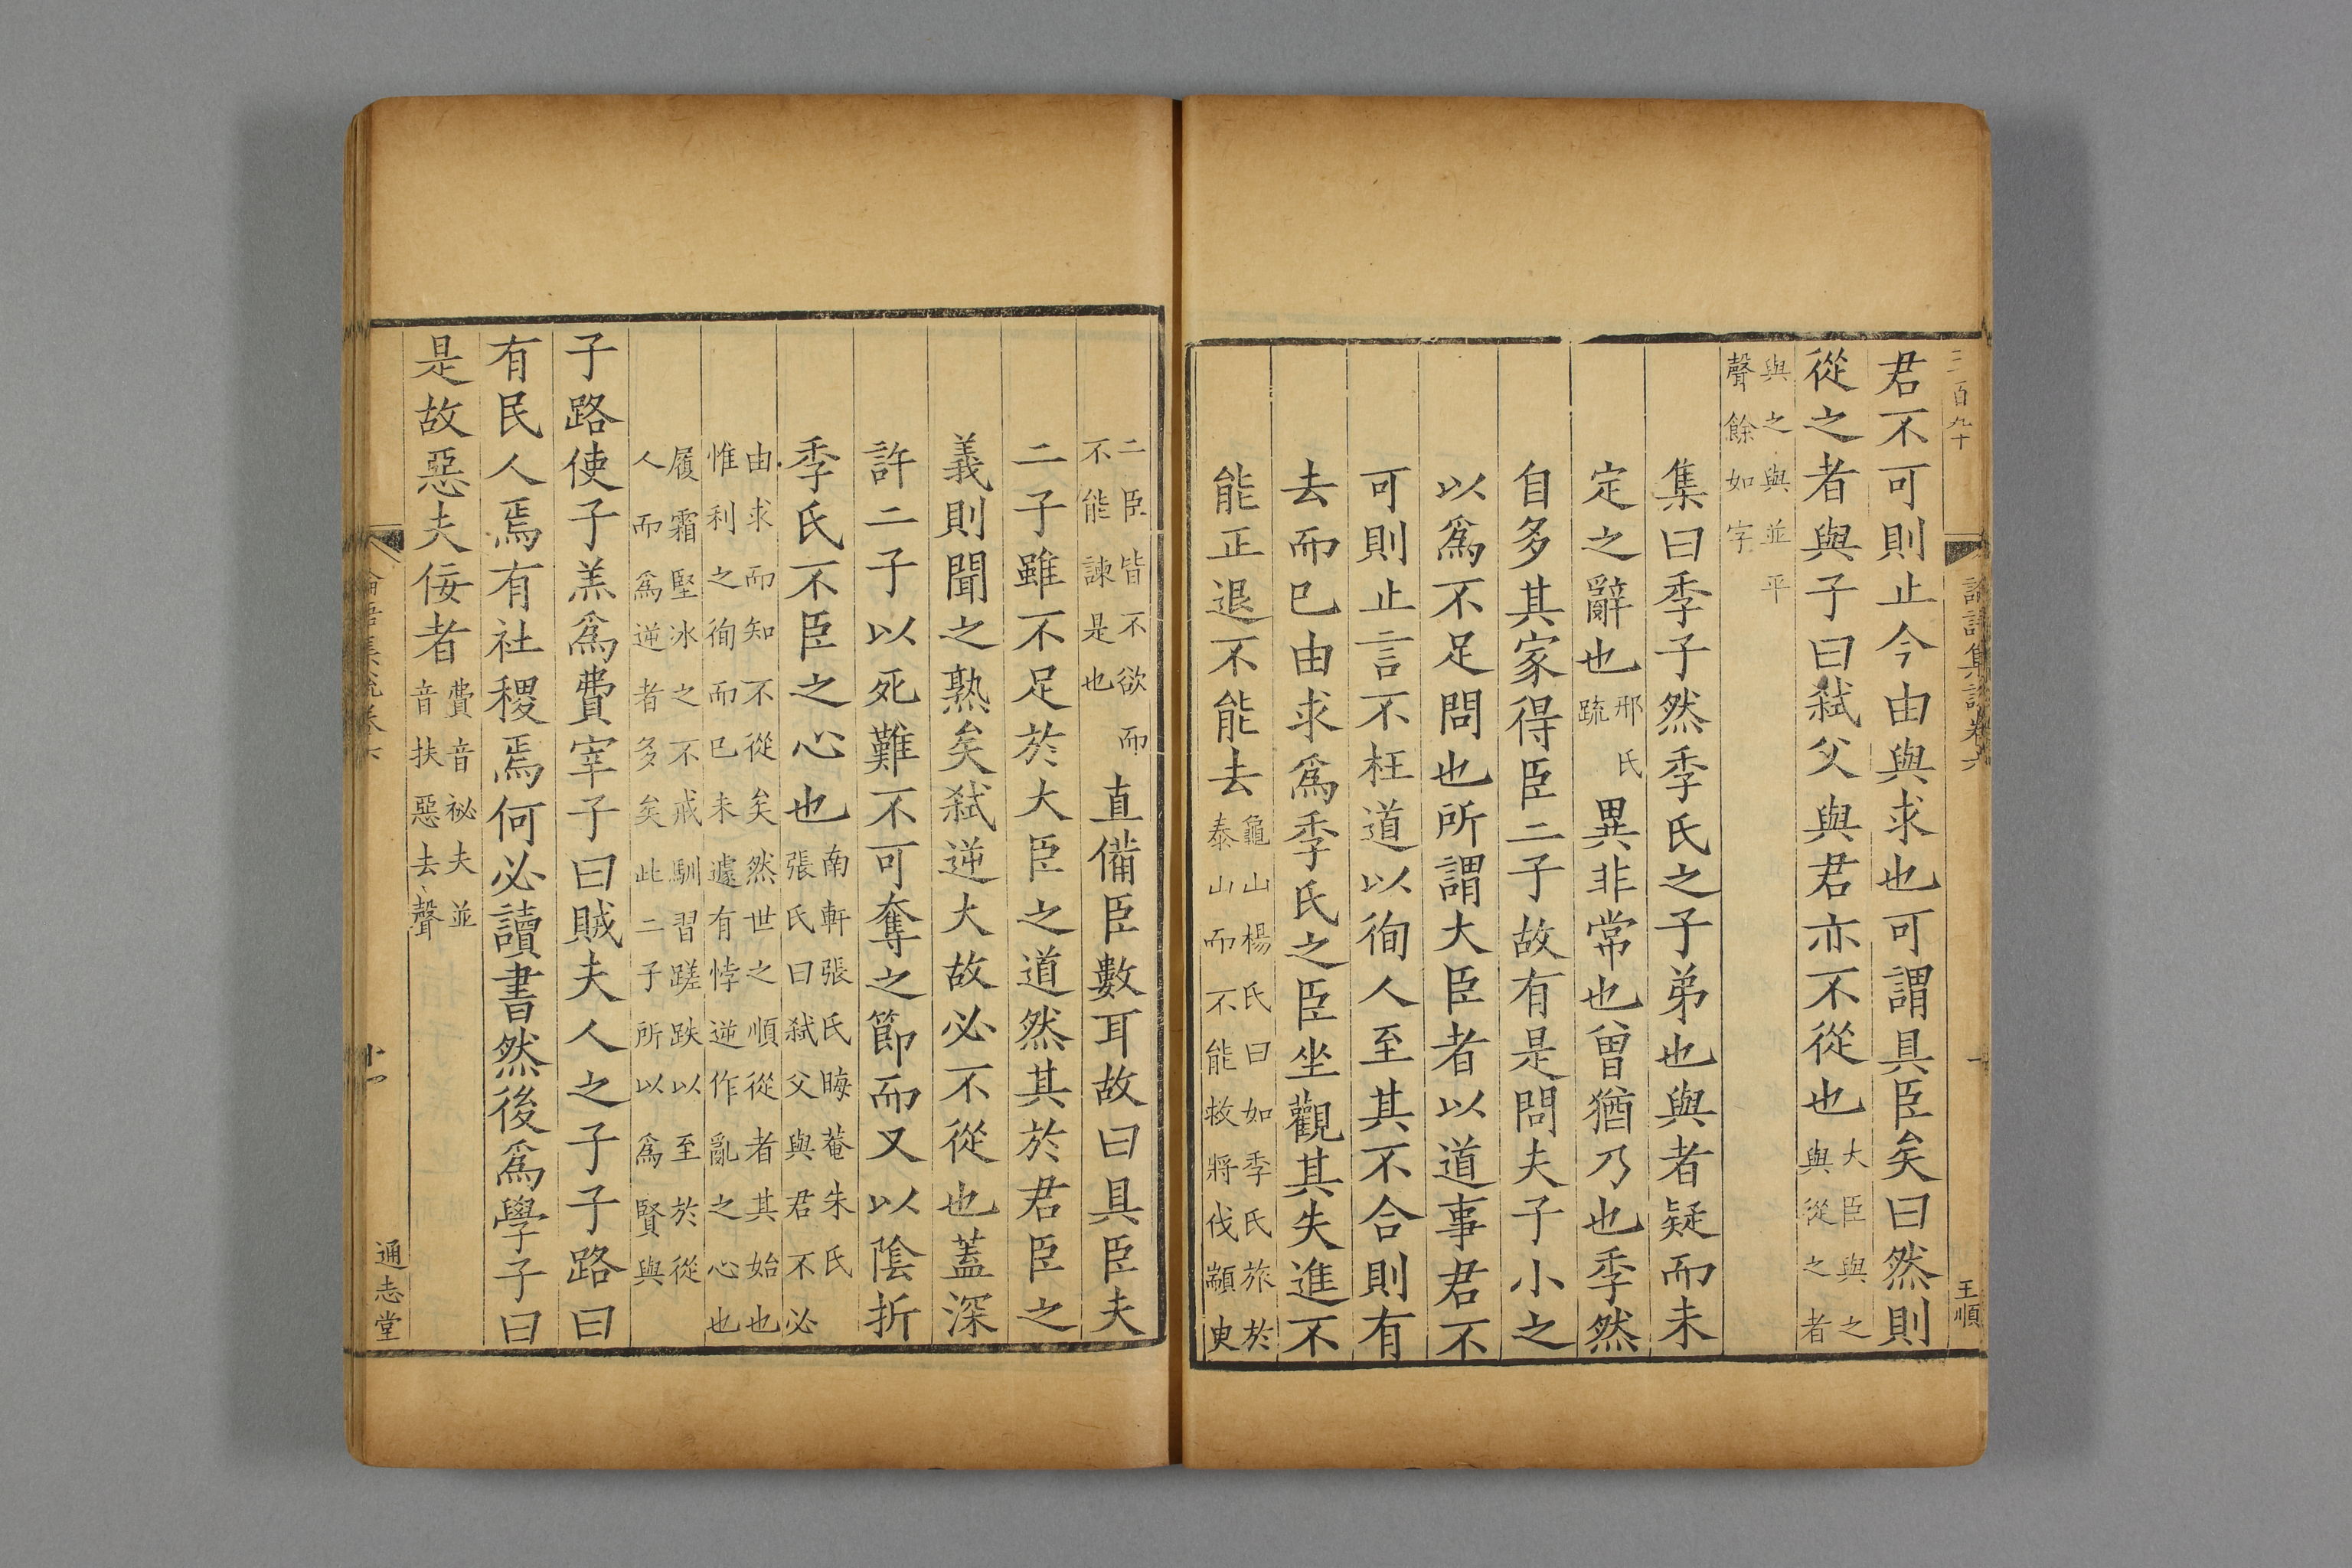 二百九十
王順
君不可則止今由與求也可謂具臣矣曰然則
從之者與子曰弒父與君亦不從也大臣與之與從之者
與之與並平聲餘如字
集曰季子然季氏之子弟也與者疑而未
定之辭也邢氏疏異非常也曾猶乃也季然
自多其家得臣二子故有是問夫子小之
以爲不足問也所謂大臣者以道事君不
可則止言不枉道以徇人至其不合則有
去而已由求爲季氏之臣坐觀其失進不
能正退不能去龜山楊氏曰如季氏旅於泰山而不能救將伐顓臾
二臣皆不欲而不能諫是也直備臣數耳故曰具臣夫
二子雖不足於大臣之道然其於君臣之
義則聞之熟矣弒逆大故必不從也蓋深
許二子以死難不可奪之節而又以陰折
季氏不臣之心也南軒張氏晦菴朱氏張氏曰弒父與君不必
由求而知不從矣然世之順從者其始也惟利之徇而已未遽有悖逆作亂之心也
履霜堅冰之不戒馴習蹉跌以至於從人而爲逆者多矣此二子所以爲賢與
子路使子羔爲費宰子曰賊夫人之子子路曰
有民人焉有社稷焉何必讀書然後爲學子曰
是故惡夫佞者費音祕夫並音扶惡去聲
十一
通志堂